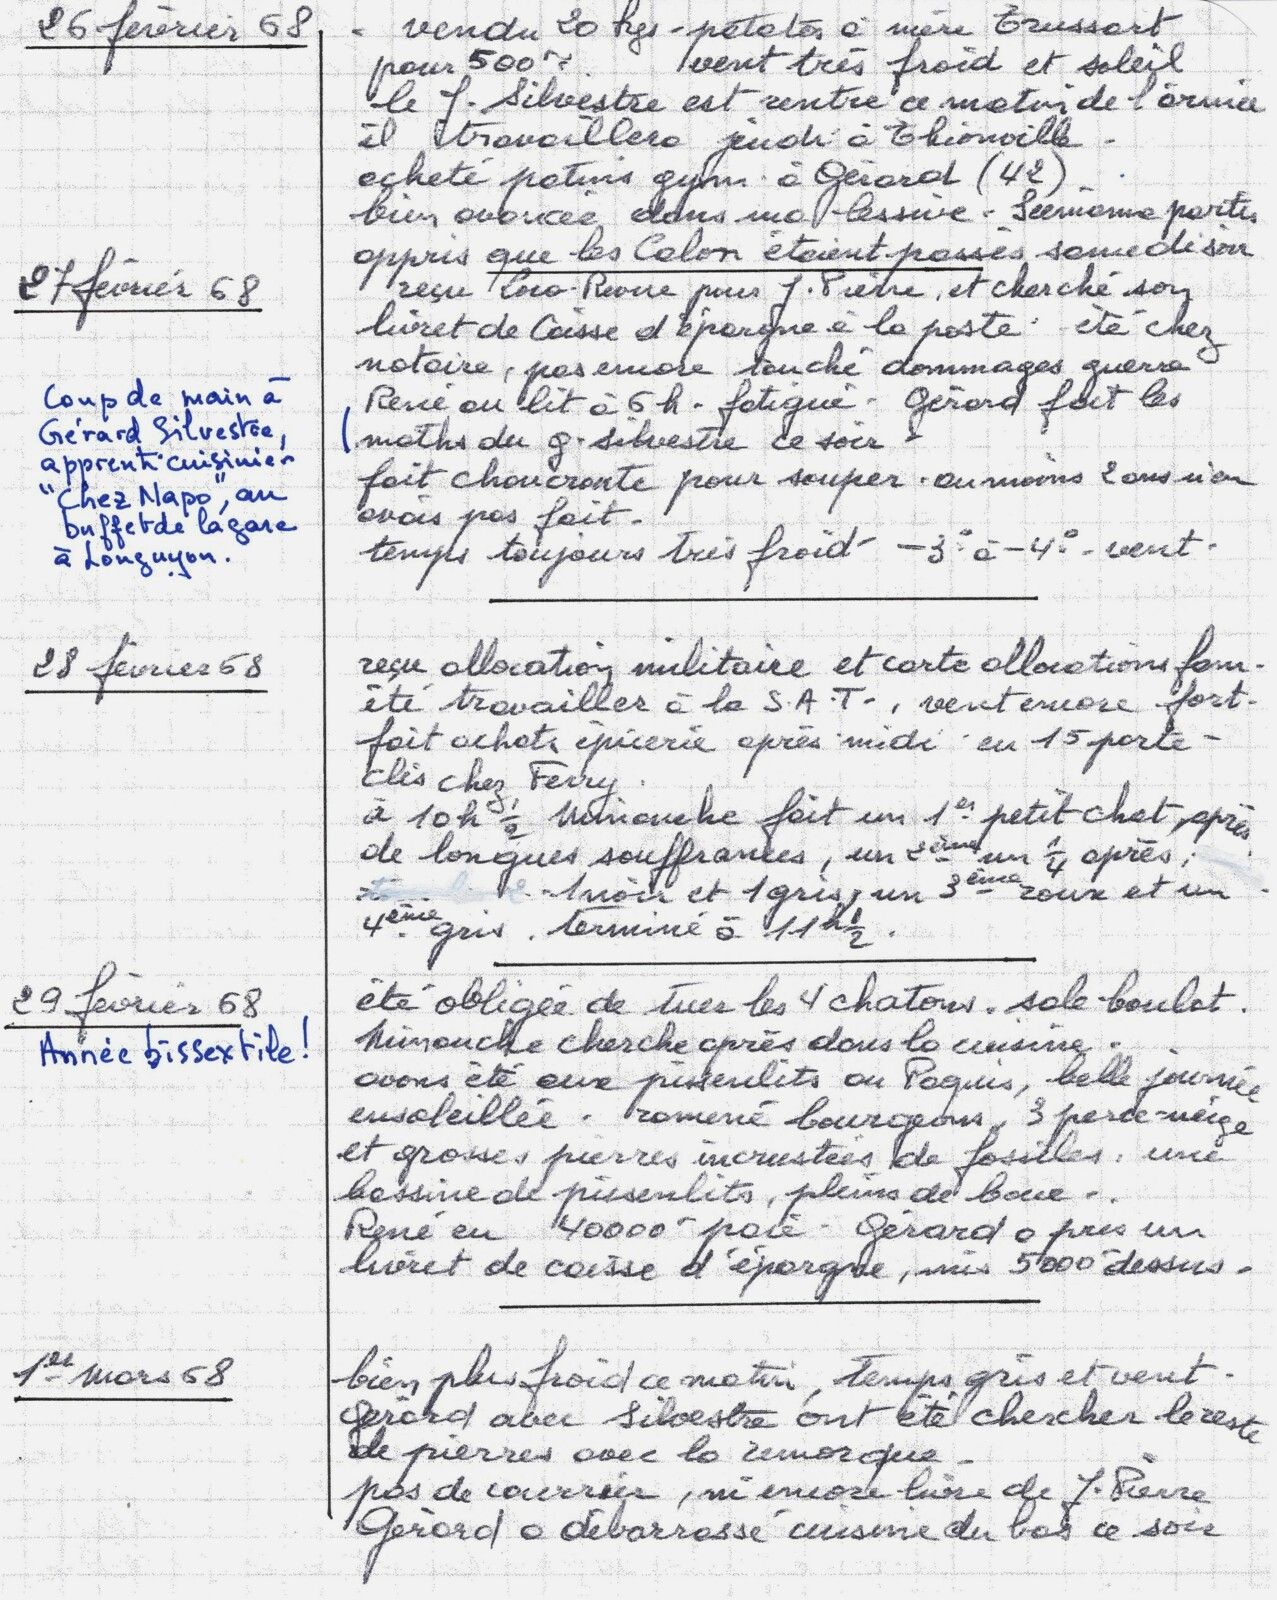 26 février 68
- vendu 20 kgs patates à mère Trussart
pour 500 vent très froid et soleil
le J. Silvestre est rentré ce matin de l'armée
il travaillera jeudi à Thionville -
acheté patins gym à Gérard (42)
bien avancée dans ma lessive - partis
appris que les Colon étaient passés samedi soir
27 février 68
reçu pour J. Pierre, et cherché son
livret de Caisse d'épargne à la poste. été chez
notaire, pas encore touché dommages guerre
René au lit à 6 h - fatigué - Gérard fait les
maths du g. Silvestre ce soir -
fait choucroute pour souper - au moins 2 ans n'en
avais pas fait -
temps toujours très froid - -3° à -4° - vent -
Coup de main à
Gérard Silvestre,
apprenti cuisinier
"Chez Napo", au
buffet de la gare
à Longuyon.
28 février 68
reçu allocation militaire et carte allocations fam -
été travailler à la S.A.T., vent encore fort -
fait achats épicerie après midi - eu 15 porte -
clés chez Ferry.
à 10h 1/2 Mimouche fait un 1er petit chat, après
de longues souffrances, un 2ème un 1/4 après,
1 noir et 1 gris, un 3ème roux et un
4ème gris. terminé à 11h 1/2.
29 février 68
Année bissextile !
été obligée de tuer les 4 chatons. sale boulot.
Mimouche cherche après dans la cuisine.
avons été aux pissenlits au Paquis, belle journée
ensoleillée - ramené bourgeons, 3 perce-neige
et grosses pierres incrustées de fossiles. une
bassine de pissenlits, pleins de boue -.
René eu 40000 paie - Gérard a pris un
livret de caisse d'épargne, mis 5000 dessus -
1er mars 68
bien plus froid ce matin, temps gris et vent -
Gérard avec Silvestre ont été chercher le reste
de pierres avec la remorque -
pas de courrier, ni encore livre de J. Pierre
Gérard a débarrassé cuisine du bas ce soir